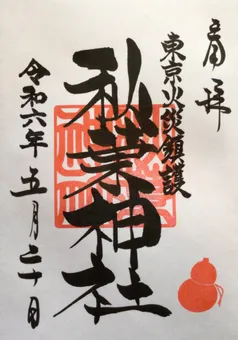 奉拝
東京火災鎮護
秋葉神社
令和六年五月二十日